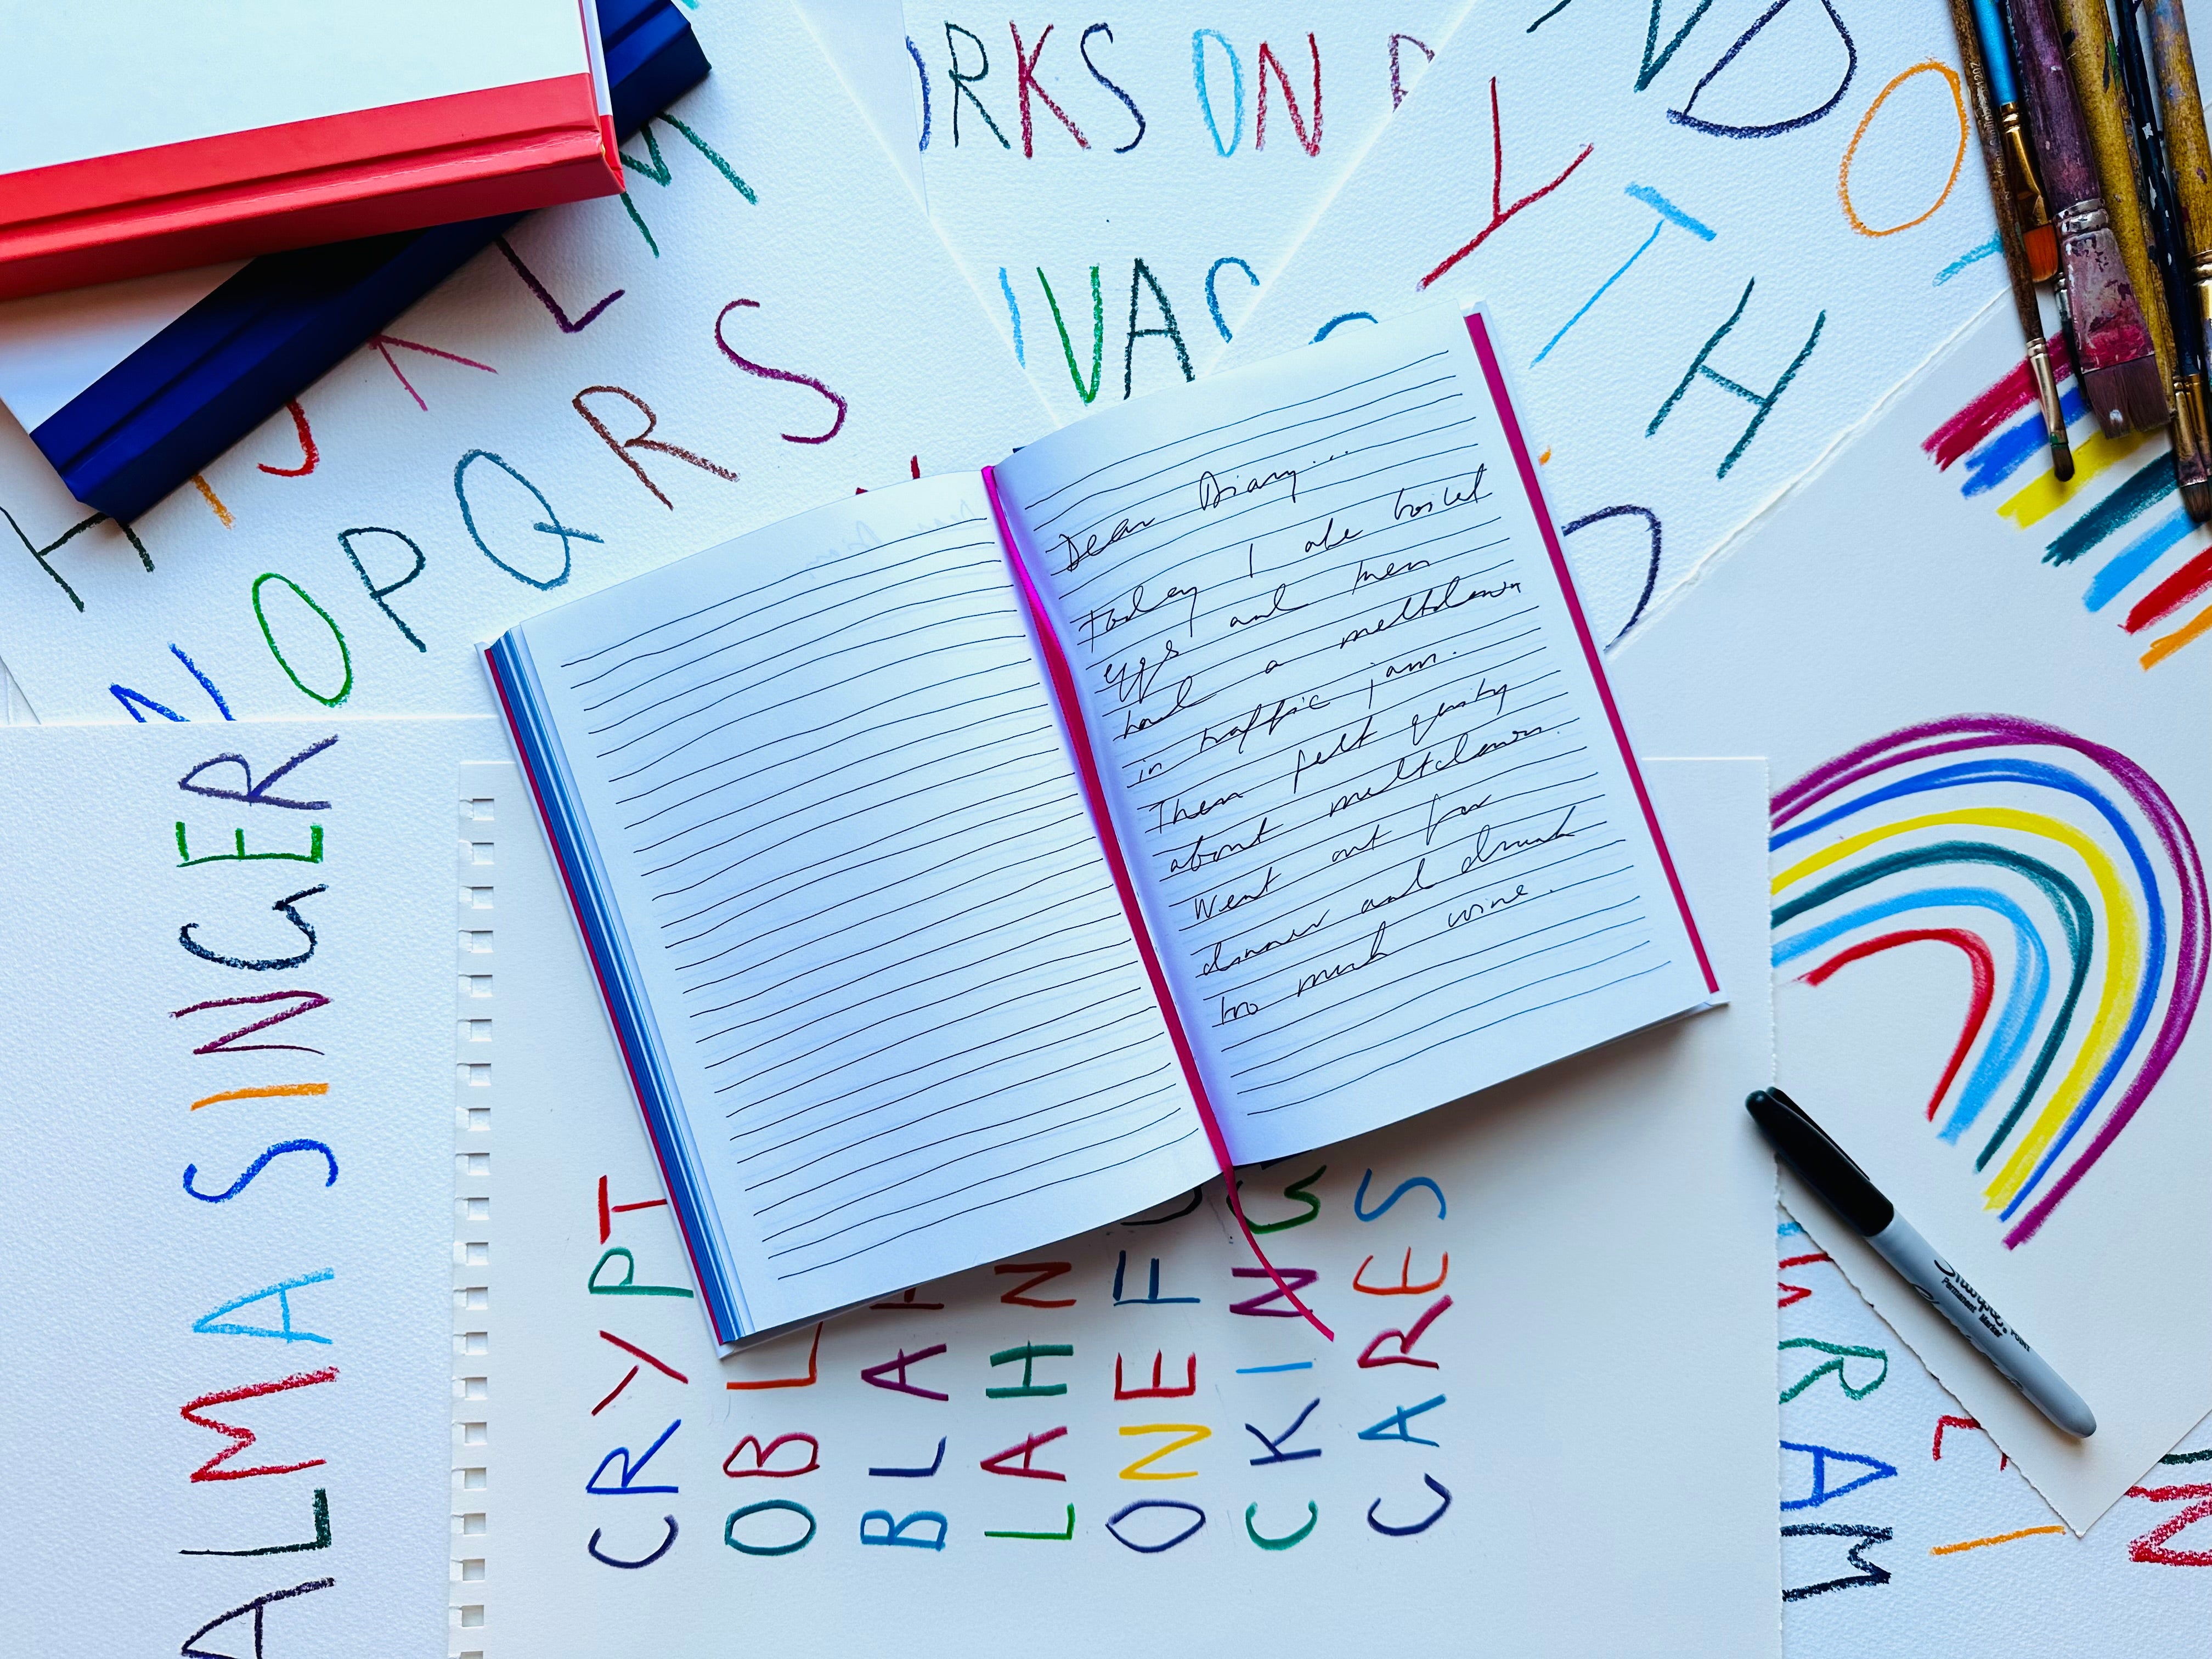 ORKS ON
IVA
Y
D
O
I
T
H
D
M
K L
H I J
N O P Q R S
ALMA SINGER
CRYPT
OBL
BLA
LAHN
ONE F
CKING
CARES
Dear Diary...
Today I ate boiled
eggs and then
had a meltdown
in traffic jam.
Then felt guilty
about meltdown.
Went out for
dinner and drank
too much wine.
Sharpie
Permanent
Marker
MAR